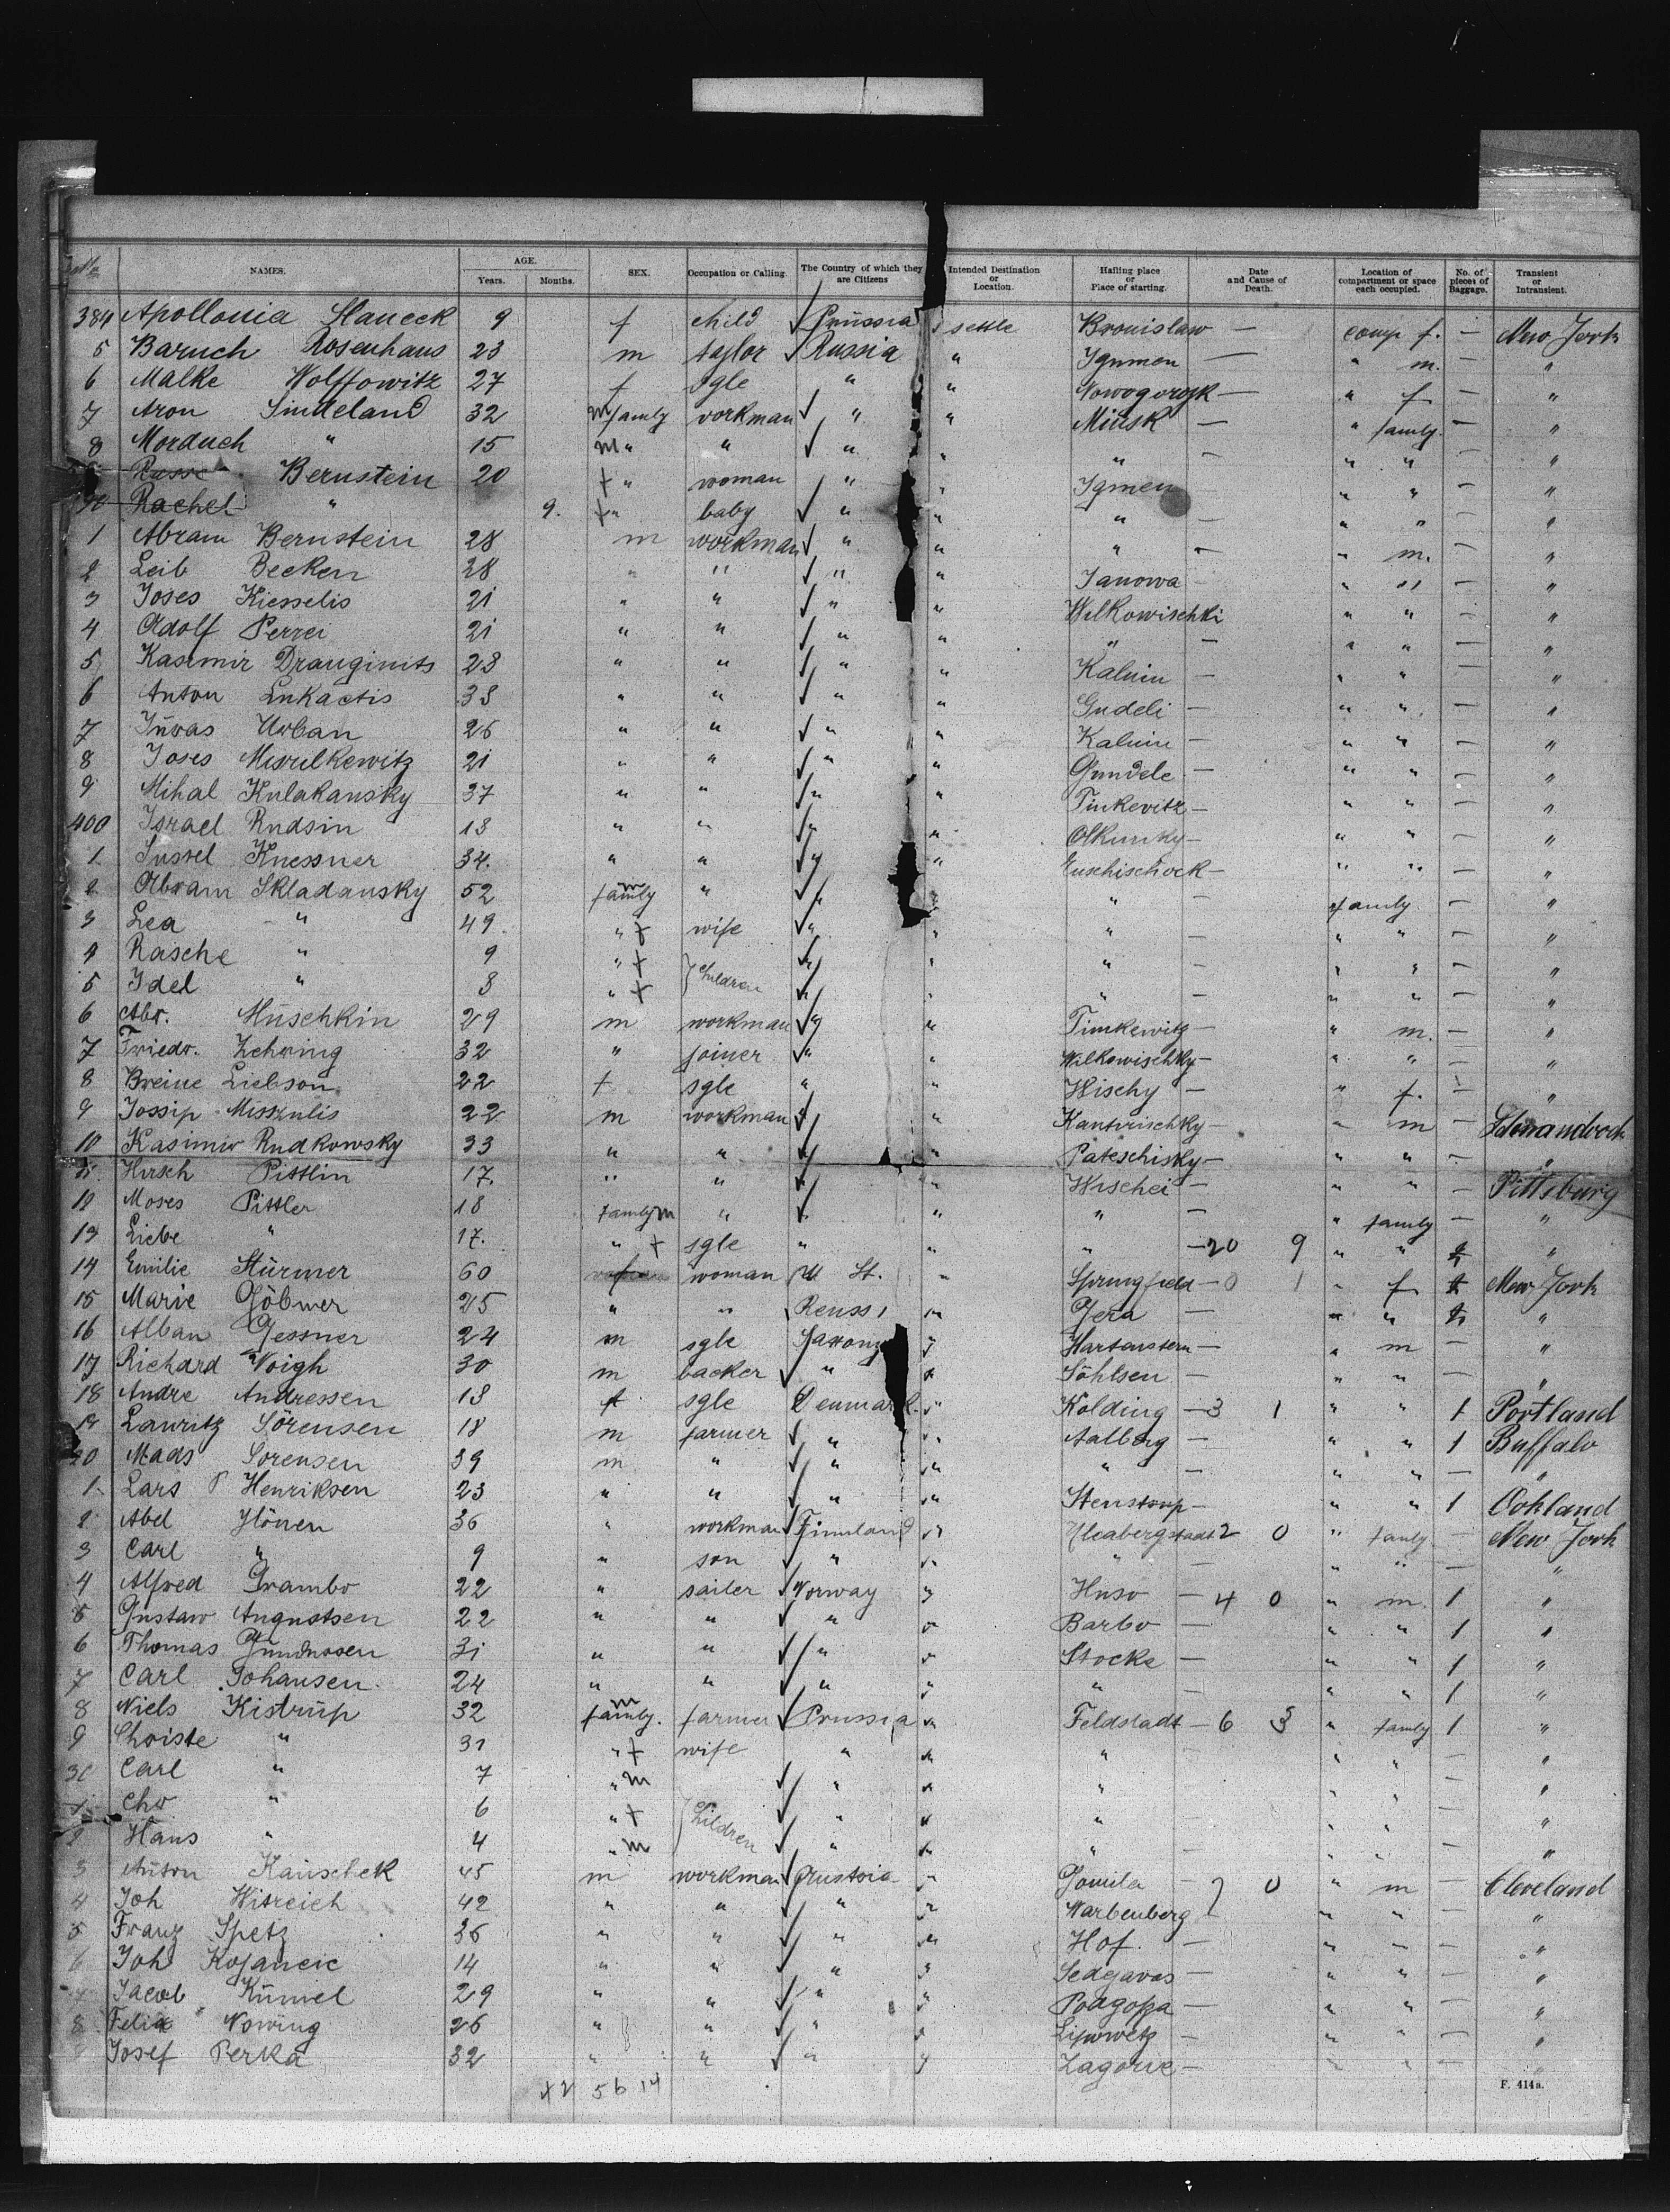 NAMES. AGE. Years. Months. SEX. Occupation or Calling. The Country of which they are Citizens Intended Destination or Location. Hailing place or Place of starting. Date and Cause of Death. Location of compartment or space each occupied. No. of pieces of Baggage. Transient or Intransient.
384 Apollonia Slaneck 9 f child Prüssia settle Bronislaw — comp f. — New York
5 Baruch Rosenhaus 23 m taylor Russia " Igumen — " m. — "
6 Malke Wolffowitz 27 f sgle " " — " f — "
7 Aron Sindeland 32 m family workman " " Minsk — " family — "
8 Morduch " 15 m " " " " " — " " — "
Bernstein 20 f " woman " " Igmen " " — "
90 Rachel " 9. f " baby " " " — " " — "
1 Abram Bernstein 28 m workman " " " — " m. — "
2 Leib Becken 28 " " " " Janowa — " " — "
3 Joses Kiesselis 21 " " " " Wilkowischki " " — "
4 Adolf Perrei 21 " " " " " — " " — "
5 Kasimir Drauginits 28 " " " " Kalvin — " " — "
6 Anton Lukactis 38 " " " " Gudeli — " " — "
7 Jüwas Urban 26 " " " " Kalvin — " " — "
8 Joses 21 " " " " Gundele — " " — "
9 Mihal Kulakansky 37 " " " " Timkevitz — " " — "
400 Israel Rudsin 18 " " " " — " " — "
1 Sussel Knessner 34. " " " " — " " — "
2 Abram Skladansky 52 m family " " " " — family — "
3 Lea " 49 " f wife " " " — " " — "
4 Rasche " 9 " f } children " " " — " " — "
5 Idel " 8 " f " " " — " " — "
6 Abr. Müschkin 29 m workman " " Timkewitz — " m. — "
7 Friedr. Zehring 32 " joiner " " Wilkowischky — " " — "
8 Breine Liebson 22 f sgle " " Wischy — " f. — "
9 Jossip Misszulis 22 m workman " — " m —
10 Kasimir Rudkowsky 33 " " " " Pateschisky — " " — "
11 Hirsch Pittlin 17. " " " " Wischei — " " — Pittsburg
12 Moses Pittler 18 family m " " " — " family — "
13 Liebe " 17. " f sgle " " " — 20 9 " " "
14 Emilie Stürmer 60 f woman U St. " Springfield — 0 1 " f New York
15 Marie Göbmer 25 " " Reuss " Gera — " " "
16 Alban Gessner 24 m sgle Saxony " Hartenstein — " m — "
17 Richard Voigh 30 m backer " " Söhlsen — " " — "
18 Andre Andressen 18 f sgle Denmark " Kolding — 3 1 " " 1 Portland
19 Lauritz Sörensen 18 m farmer " " Aalborg — " " 1 Buffalo
20 Mads Sorensen 39 m " " " " — " " — "
1 Lars P Henriksen 23 " " " " Stenstrup — " " 1
2 Abel 36 " workman Finnland " 2 0 " family New York
3 Carl " 9 " son " " " — " " — "
4 Alfred Grambo 22 " sailer Norway " Huso — 4 0 " m. 1 "
5 Gustaw Augustsen 22 " " " " Barbo — " " 1 "
6 Thomas Gundnosen 31 " " " " Stocke — " " 1 "
7 Carl Johansen 24 " " " " " — " " 1 "
8 Niels Kistrüp 32 m family. farmer Prussia " Feldstadt — 6 3 " family 1 "
9 Christe " 31 " f wife " " " — " " — "
30 Carl " 7 " m " " " " " — "
1 Chr " 6 " f } Children " " " " " — "
2 Hans " 4 " m " " " " " — "
3 Anton Kauschek 45 m workman Austria " Gomila — 7 0 " m — Cleveland
4 Joh Wisreich 42 " " " " Warbenberg " " — "
5 Franz Spetz 36 " " " " Hof. — " " — "
6 Joh Kojancic 14 " " " " Sedgavas — " " — "
7 Jacob Kümel 29 " " " " — " " — "
8 Felix Nowing 26 " " " " Lipowetz — " " — "
Josef Perka 32 " " " " Zagorie — " " — "
56 14
F. 414a.